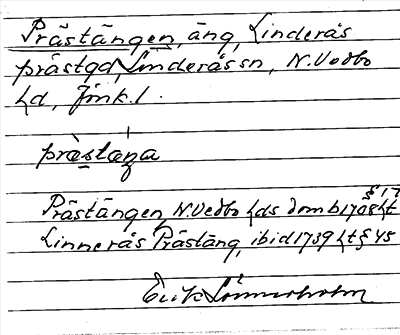 Prästängen, äng, Linderås
prästgd, Linderås sn, N. Vedbo
hd, Jönk. l.
præstæŋa
Prästängen, N. Vedbo hds domb 1708 ht § 17
Linnerås Prästäng, ibid 1739 ht § 45
Erik Lönnerholm